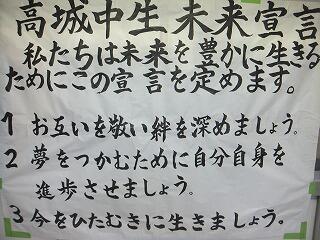 高城中生未来宣言
私たちは未来を豊かに生きる
ためにこの宣言を定めます。
1 お互いを敬い絆を深めましょう。
2 夢をつかむために自分自身を
進歩させましょう。
3 今をひたむきに生きましょう。